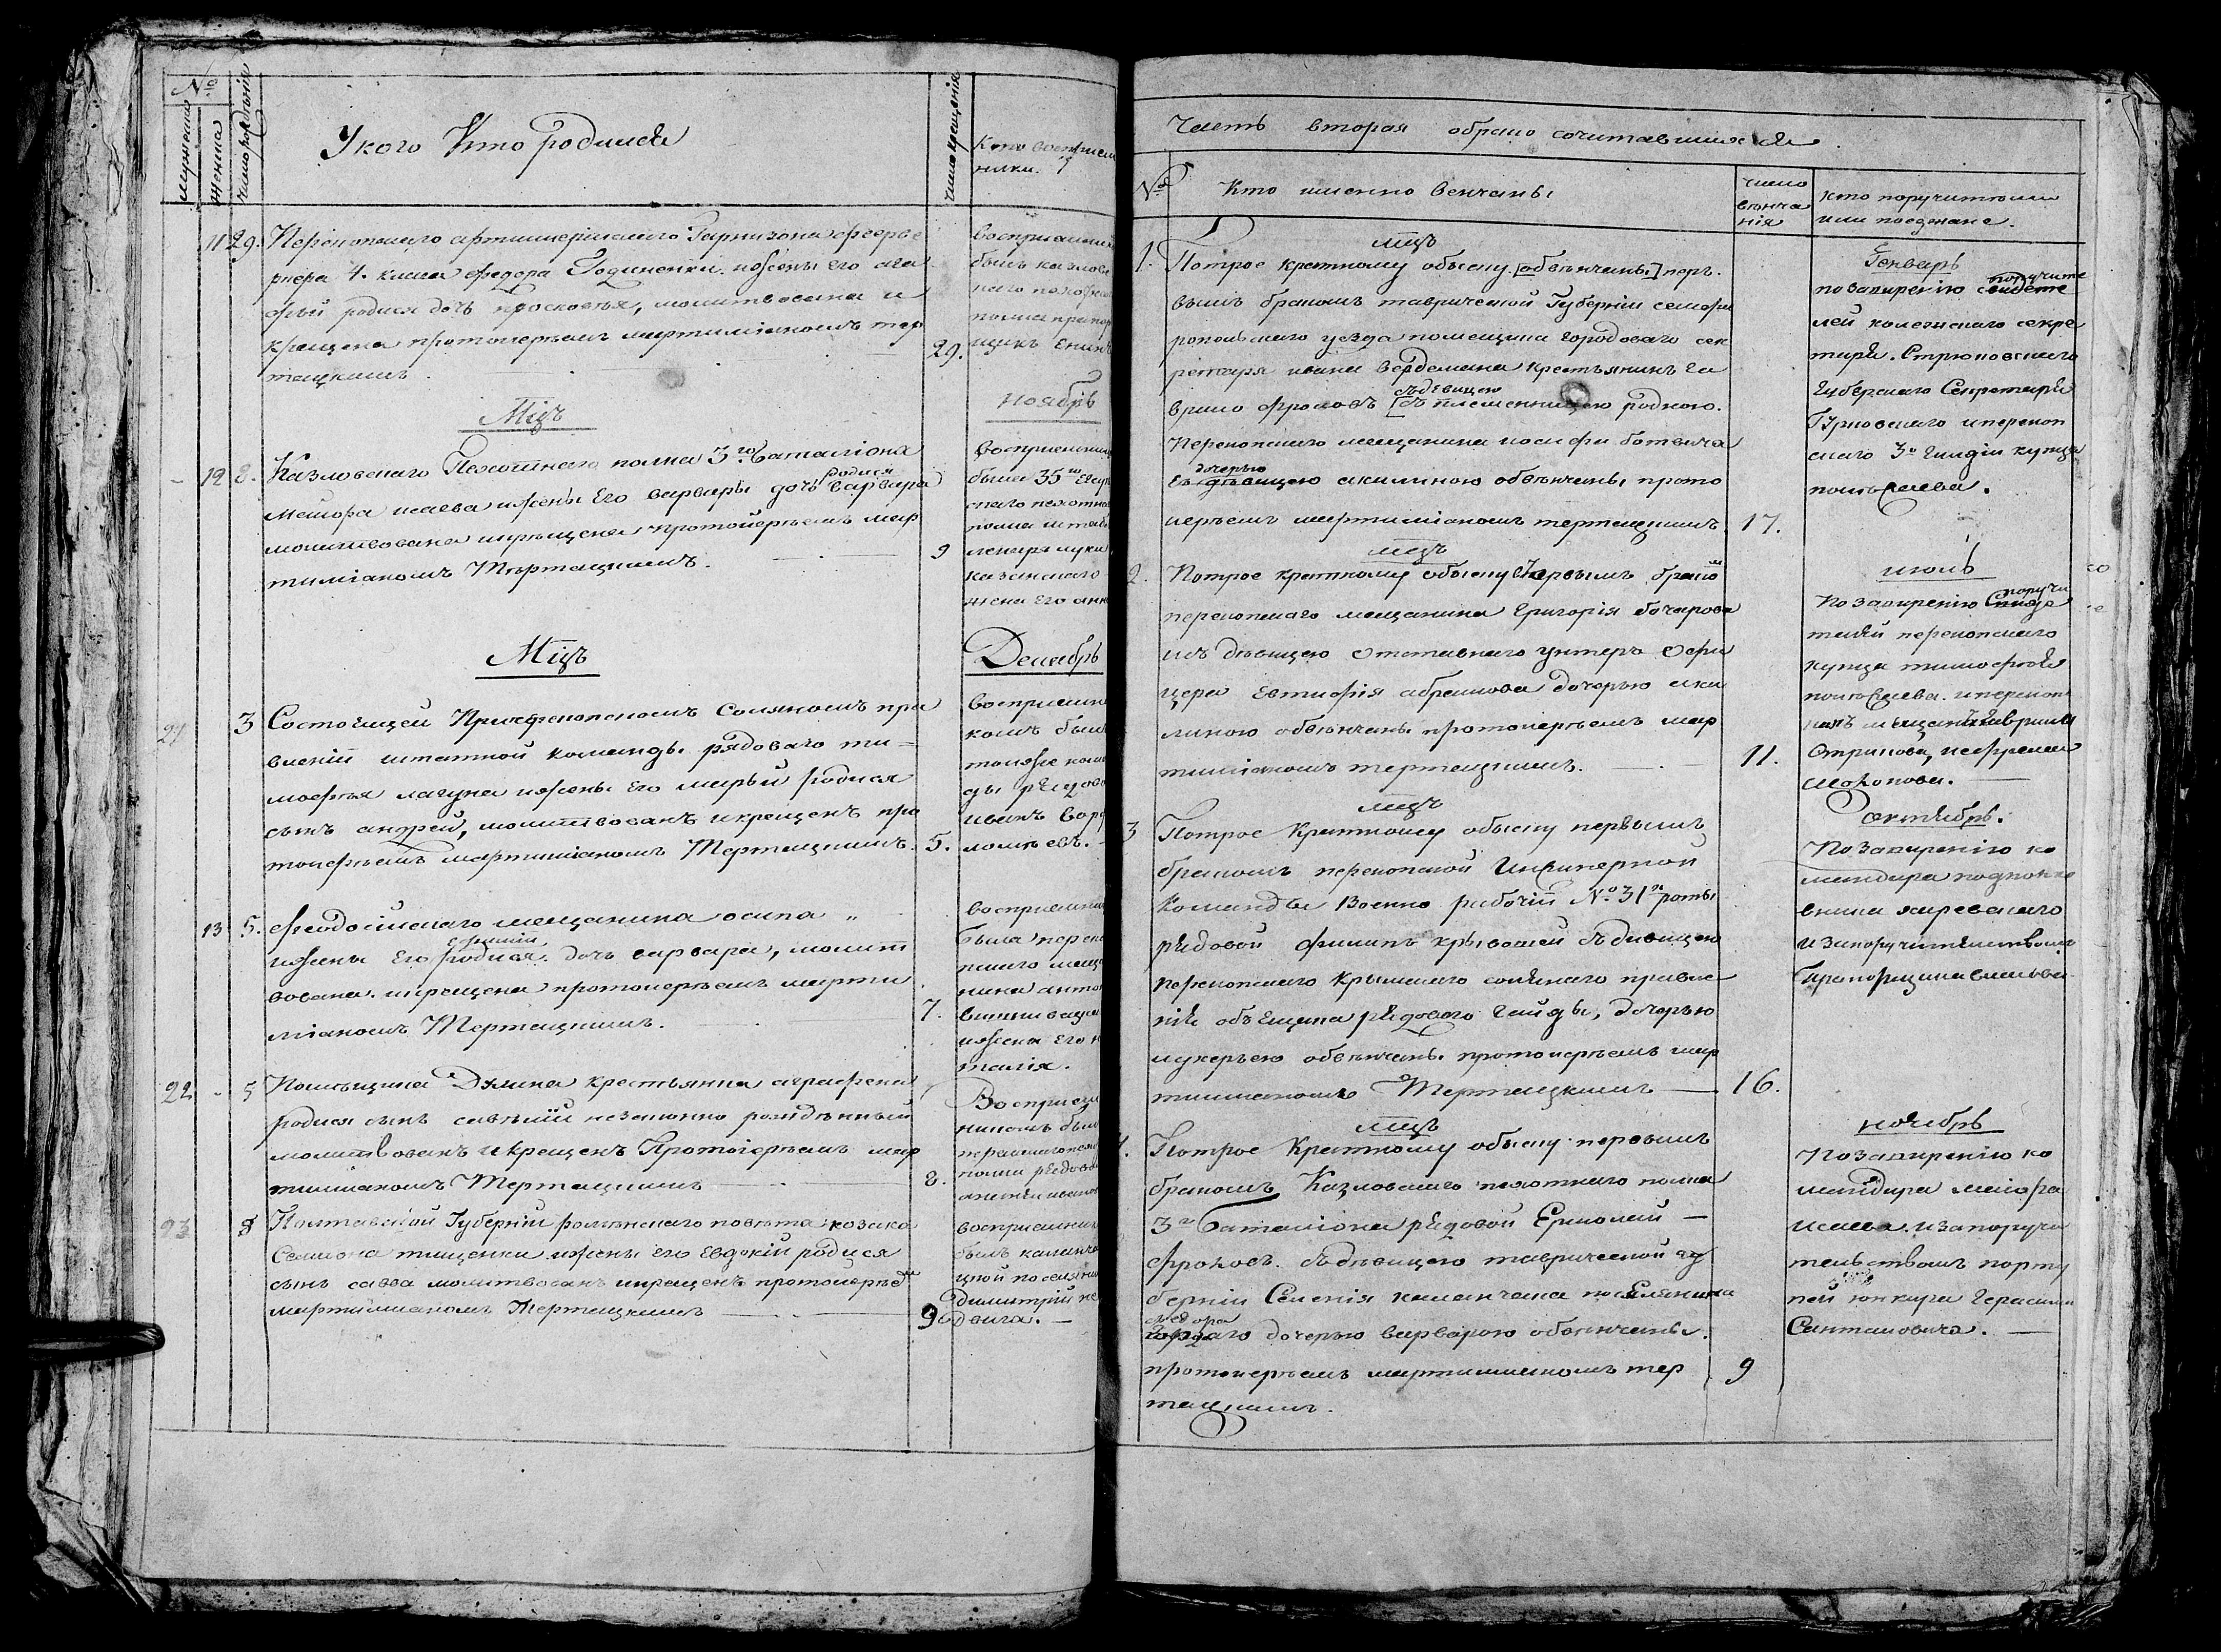 №
мужеска
женска
число рожденія
У кого Кто родился
число крещенія
Кто восприем
ники.
11 29. Перекопскаго артиллерійскаго Гарнизона феэрве
ркера 4. класа федора Годиненки. ижены его ага
фьи родися дочь Просковья, молитвована и
крещена протоиереемъ мартиміаномъ тер
тацкимъ. 29.
восприемник
былъ казлов
каго пехотн
полка прапор
щикъ
Мцъ
ноябрь
12 8. Казловскаго Пехотнаго полка 3го баталіона
родися
Маіора исаева ижены Его варвары дочь варвара
молитвована икрещена протоіереемъ мар
тиміаномъ Тертацкимъ. 9
Восприемниц
была 35го Егер
скаго пехотна
полка штабъ
лекаря луки
казанскаго
жена его анн
Мцъ
Декабрь
21 3 Состоящей Приперекопскомъ Соляномъ пра
вленіи штатной команды рядоваго ти=
мофея лагуна ижены Его марьи родися
сынъ андрей, молитвованъ икрещенъ про
тоиереемъ мартиміаномъ Тертацкимъ. 5.
восприемни
комъ былъ
тояже коман
ды рядово
иванъ вар
ломѣевъ.
13 5. феодосійскаго мещанина осипа "
ижены Его родися дочь варвара, молит
вована. икрещена протоиереемъ марти
міаномъ Тертацкимъ. 7.
восприемниц
была переко
пскаго меща
нина анто
ижена Его н
талія.
22 - 5 Помѣщика Дялина крестьянка аграфена
родися сынъ савѣлій незаконно рожденный
молитвованъ икрещенъ Протоіереемъ мар
тиміаномъ Тертацкимъ 8.
Восприем
никомъ былъ
полка рядово
23 8 Полтавской Губерніи роменскаго повѣта козака
Семиона тищенки ижены его Евдокіи родися
сынъ савва молитвованъ икрещенъ протоиерее
мартиміаномъ Тертацкимъ 9
восприемник
былъ каланча
цкой поселянин
Димитрій не
двига.
Часть вторая обрако сочитавшихся.
№ Кто именно венчаны
число
вѣнча
нія
кто поручителми
или поезжане.
мцъ
Генварь
1. Потрое кратному обыску [обвѣнчаны] пер
вымъ бракомъ таврической Губерніи семфи
ропольскаго уезда помещика городоваго сек
ретаря ивана Вердемана крестьянинъ га
съдѣвицею
врило фроловъ [съ племенницею родною.
Перекопскаго мещанина иосифа ботвича
дочерью
съ дѣвицею акилиною обвѣнчаны прото
иереемъ мартиміаномъ тертацкимъ. 17.
поручите
позавиренію свидете
лей колежскаго секре
таря. Стрюковскаго
Губерскаго Секретаря
Турновскаго иперекоп
скаго 3й Гилдіи купца
полѣваева.
мцъ
июль
2. Потрое кратному обыску первымъ брако
перекопскаго мещанина Григорія бочарова
съ дѣвицею отставнаго унтеръ офи
цера Евтифія абрамова дочерью аки
линою обвѣнчаны протоиереемъ мар
тиміаномъ тертацкимъ. 11.
поручи
Позавиренію
телей перекопскаго
купца тимофѣя
полѣваева. иперекоп
Стрикова, иефрема
шоконова.
мцъ
октябрь.
3 Потрое Кратному обыску первымъ
бракомъ перекопской Инжинерной
Команды Военно рабочій №31й роты
рядовой филипъ крывошей съдивицею
перекопскаго Крымскаго солянаго правле
нія объещика рядоваго Гайды, дочерью
лукерьею обвѣнчаны протоиереемъ мар
тиміаномъ Тертацкимъ 16.
Позавиренію ко
мандира подполко
вника
изапоручительством
Прапорщика
мцъ
ноябрь
4. Потрое Кратному обыску первымъ
бракомъ Казловскаго пехотнаго полка
3го баталіона рядовой Ермолай
фроловъ. съдѣвицею таврической гу
берніи Селенія каланчака поселянина
федора
дочерью варварою обвѣнчаны.
протоиереемъ мартиміаномъ тер
тацкимъ. 9
Позавиренію ко
мандира маіора
исаева. изапоручи
тельствомъ порту
пей юнкира Герасима
Сантановича.